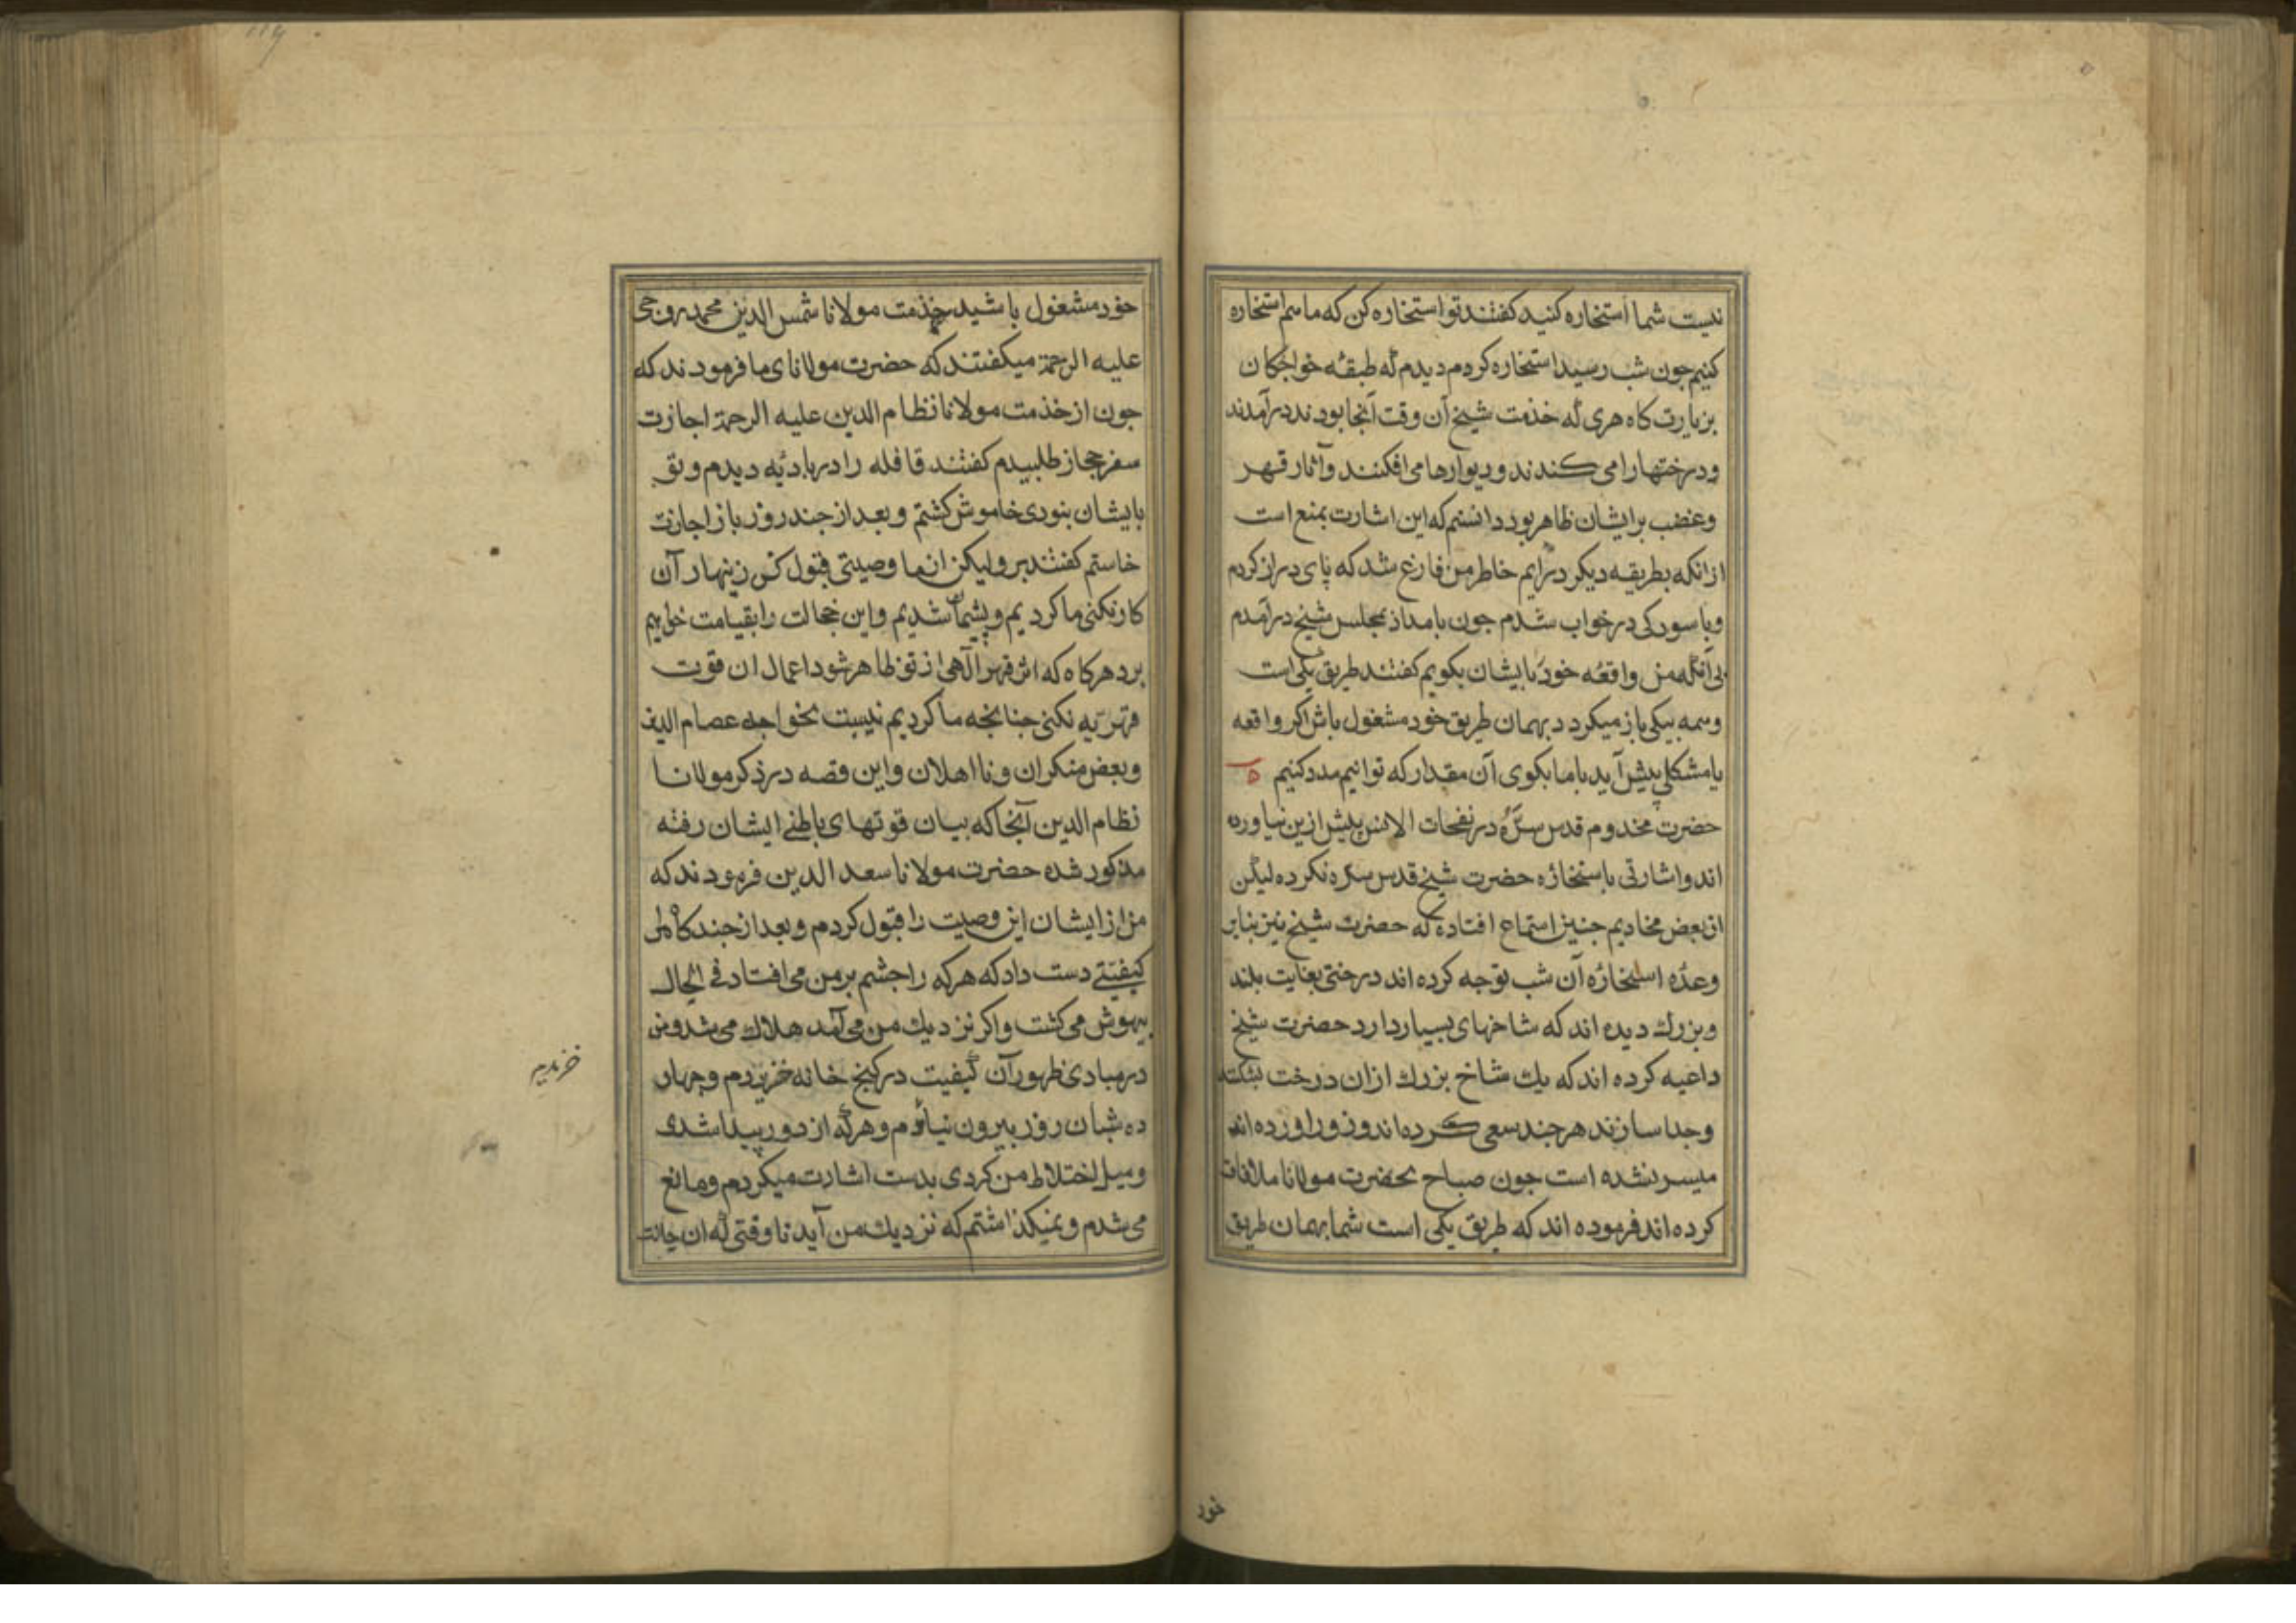 نیست شما استخاره کنید کفتند تو استخاره کن که ما هم استخاره
کنیم جون شب رسید استخاره کردم دیدم که طبقهٔ خواجکان
بزیارت کاه هری که خذمت شیخ آن وقت آنجا بودند درآمدند
ودرختها را می کندند ودیوارها می افکنند وآثار قهر
وغضب برایشان ظاهر بود دانستم که این اشارت بمنع است
ازانکه بطریقه دیکر درایم خاطر من فارغ شد که پای دراز کردم
وباسودکی درخواب شدم جون بامداد بمجلس شیخ درآمدم
بی آنکه من واقعهٔ خود بایشان بکویم کفتند طریق یکی است
وهمه بیکی باز میکردد بهمان طریق خود مشغول باش اکر واقعه
یا مشکلی پیش آید باما بکوی آن مقدار که توانیم مدد کنیم
حضرت مخدوم قدس سرّه در نفحات الانس بیش ازین نیاورده
اند واشارتی باستخارهٔ حضرت شیخ قدس سره نکرده لیکن
از بعض مخادیم جنین استماع افتاده که حضرت شیخ نیز بنابر
وعدهٔ استخارهٔ آن شب توجه کرده اند درختی بغایت بلند
وبزرك دیده اند که شاخهای بسیار دارد حضرت شیخ
داعیه کرده اند که یك شاخ بزرك ازان درخت بشکنند
وجدا سازند هرجند سعی کرده اند وزور آورده اند
میسر نشده است جون صباح بحضرت مولانا ملاقات
کرده اند فرموده اند که طریق یکی است شما بهمان طریق
خود مشغول باشید خذمت مولانا شمس الدین محمد روجی
علیه الرحمة میکفتند که حضرت مولانای ما فرمودند که
جون از خذمت مولانا نظام الدین علیه الرحمة اجازت
سفر حجاز طلبیدم کفتند قافله را در بادیه دیدم وتو
بایشان بنودی خاموش کشتم وبعد از جند روز باز اجازت
خاستم کفتند برو لیکن از ما وصیتی قبول کن زینهار آن
کار نکنی ما کردیم وپشیمان شدیم واین خجالت را بقیامت خواهیم
برد هرکاه که اثر قهر الهی از تو ظاهر شود اعمال ان قوت
قهریّه نکنی جنانجه ما کردیم نسبت بخواجه عصام الدین
وبعض منکران ونااهلان واین قصه در ذکر مولانا
نظام الدین آنجا که بیان قوتهای باطنے ایشان رفته
مذکور شده حضرت مولانا سعد الدین فرمودند که
من از ایشان این وصیت را قبول کردم وبعد از جندکاه مرا
کیفیتے دست داد که هرکه را جشم بر من می افتاد فی الحال
بیهوش می کشت واکر نزدیك من می آمد هلاك می شد ومن
در مبادی ظهور آن کیفیت در کنج خانه خزیدم وجهار
ده شبان روز بیرون نیامدم وهرکه از دور پیدا شدی
ومیل اختلاط من کردی بدست اشارت میکردم ومانع
می شدم ونمیکذاشتم که نزدیك من آید تا وقتی که ان حالت
خزیدم
خود